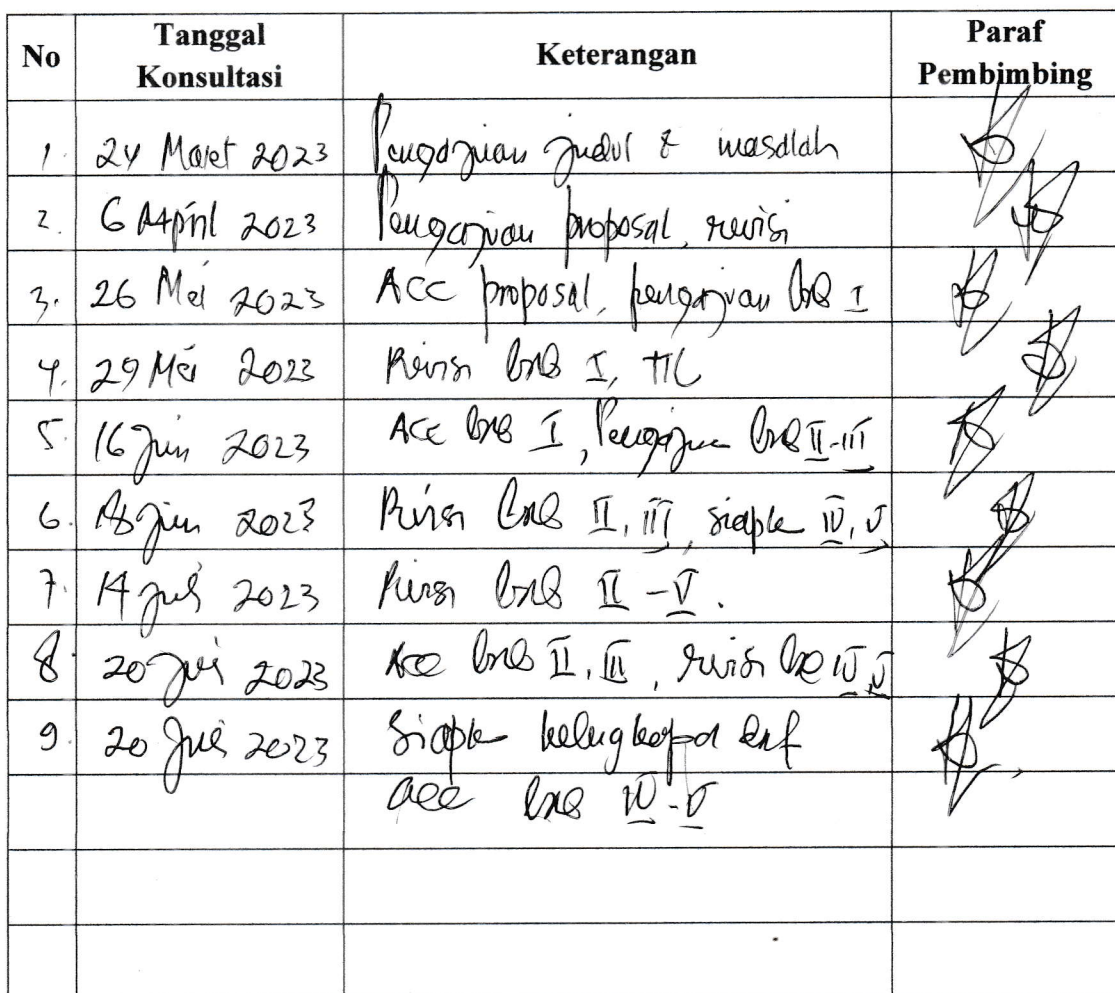 No Tanggal Konsultasi Keterangan Paraf Pembimbing
1. 24 Maret 2023 Pengajuan judul & masalah
2. 6 April 2023 Pengajuan proposal, revisi
3. 26 Mei 2023 ACC proposal, pengajuan bab I
4. 29 Mei 2023 Revisi bab I,
5. 16 Juni 2023 ACC bab I, Pengajuan bab II-III
6. 18 Juni 2023 Revisi bab II, III, siapk IV, V
7. 14 Juli 2023 Revisi bab II - V.
8. 20 Juli 2023 Acc bab II, III, revisi bab IV, V
9. 20 Juli 2023 Siapk
acc bab IV-V